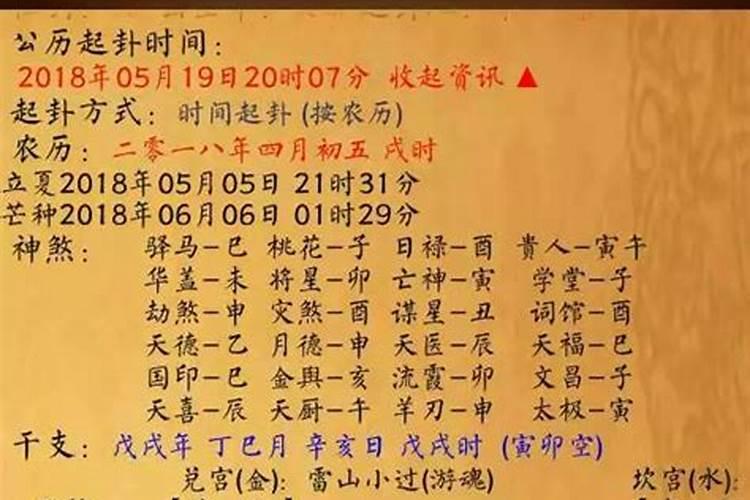 公历起卦时间：
2018年05月19日20时07分 收起资讯 ▲
起卦方式：时间起卦(按农历)
农历：二零一八年四月初五 戌时
立夏2018年05月05日 21时31分
芒种2018年06月06日 01时29分
神煞： 驿马—巳 桃花—子 日禄—酉 贵人—寅午
华盖—未 将星—卯 亡神—寅 学堂—子
劫煞—申 灾煞—酉 谋星—丑 词馆—酉
天德—乙 月德—申 天医—辰 天福—巳
国印—巳 金舆—亥 流霞—卯 文昌—子
天喜—辰 天厨—午 羊刃—申 太极—寅
干支：戊戌年 丁巳月 辛亥日 戊戌时 (寅卯空)
兑宫(金)：雷山小过(游魂) 坎宫(水)：